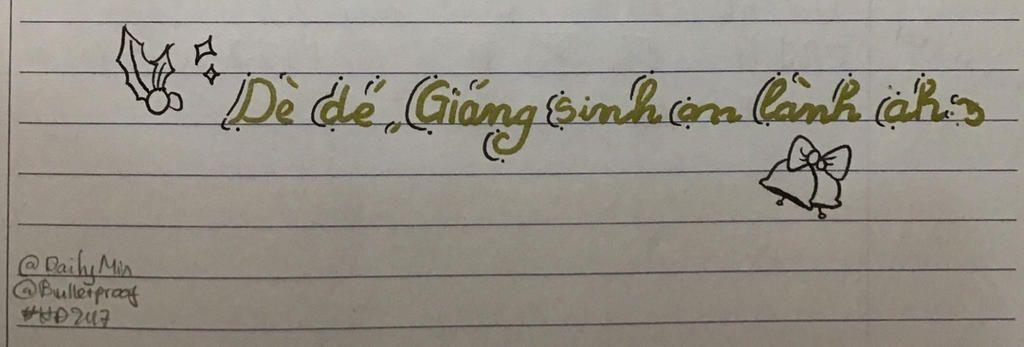 Dè dé, Giáng sinh an lành ah :3
@DailyMin
@Bulletproof
#HD247